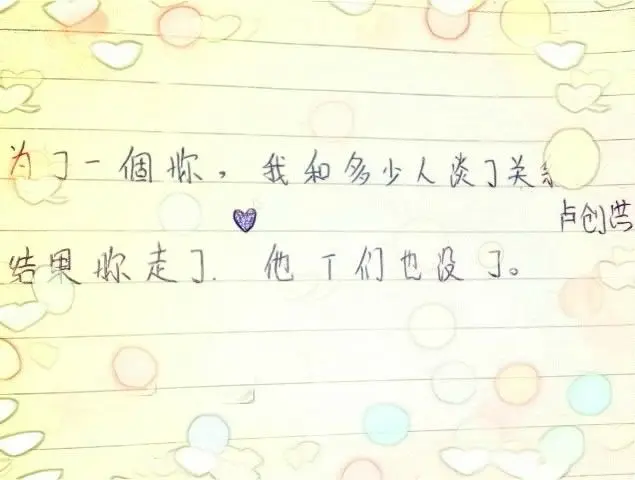 为了一個妳，我和多少人淡了关系
卢创洪
结果妳走了. 他丁们也没了。